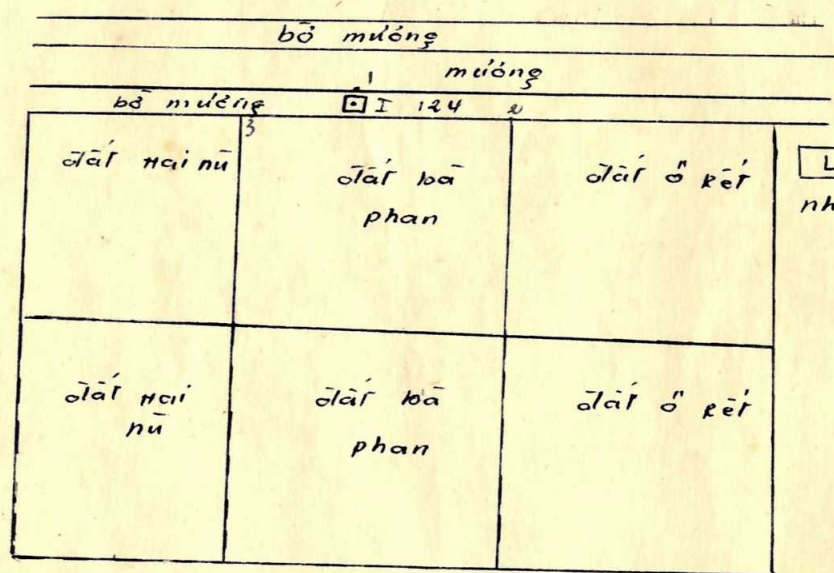 bờ mương
mương
1
bờ mương
I 124
2
3
đất Hai nũ
đất bà
phan
đất ô kết
L
nh
đất Hai
nũ
đất bà
phan
đất ô kết